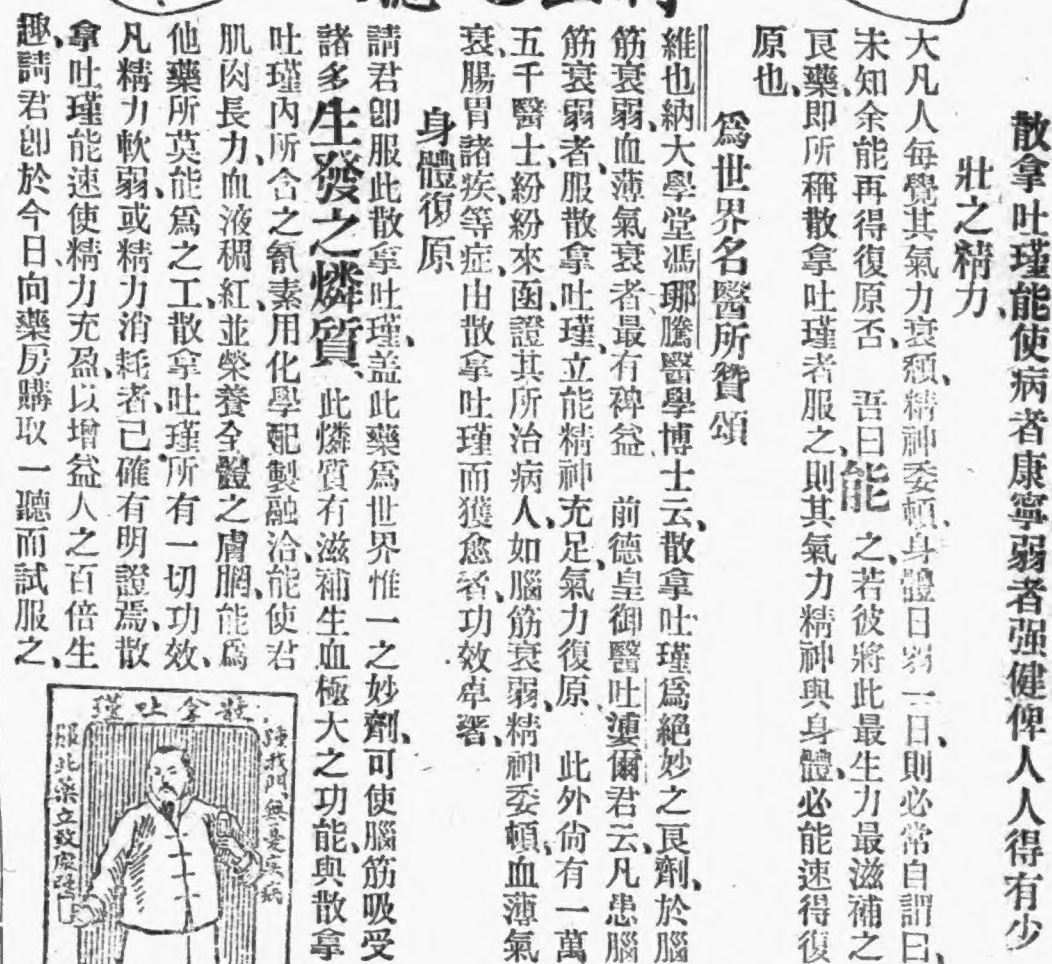 散拿吐瑾能使病者康寧弱者强健俾人人得有少
壯之精力
大凡人每覺其氣力衰頹、精神委頓、身體日弱一日、則必常自謂曰、
未知余能再得復原否、吾曰能之、若彼將此最生力最滋補之
良藥、即所稱散拿吐瑾者服之、則其氣力精神與身體、必能速得復
原也、
爲世界名醫所贊頌
維也納大學堂馮琊騰醫學博士云、散拿吐瑾爲絕妙之良劑、於腦
筋衰弱、血薄氣衰者最有裨益 前德皇御醫吐瀴爾君云、凡患腦
筋衰弱者、服散拿吐瑾、立能精神充足、氣力復原 此外尙有一萬
五千醫士、紛紛來函、證其所治病人、如腦筋衰弱、精神委頓、血薄氣
衰、腸胃諸疾、等症、由散拿吐瑾而獲愈者、功效卓著、
身體復原
請君卽服此散拿吐瑾、盖此藥爲世界惟一之妙劑、可使腦筋吸受
諸多生發之燐質、此燐質有滋補生血極大之功能、與散拿
吐瑾內所含之氮素、用化學配製融洽、能使君
肌肉長力、血液稠紅、並榮養全體之膚膶、能爲
他藥所莫能爲之工、散拿吐瑾所有一切功效、
凡精力軟弱、或精力消耗者、已確有明證焉、散
拿吐瑾能速使精力充盈、以增益人之百倍生
趣、請君卽於今日向藥房購取一聽而試服之、
散拿吐瑾
陳我門無憂疾病
服此藥立致康強